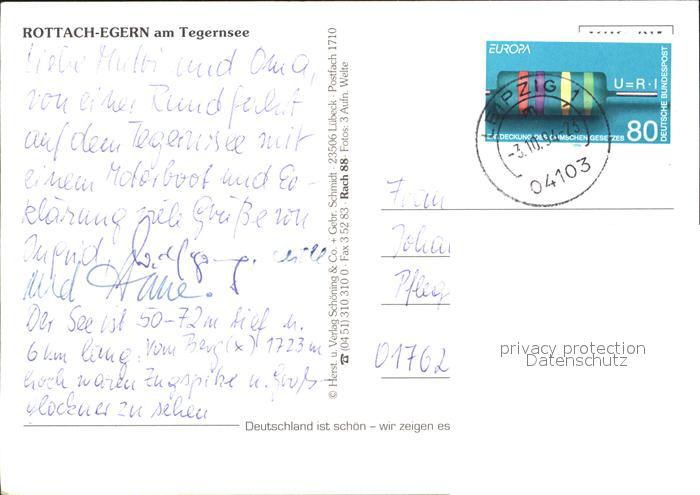 ROTTACH-EGERN am Tegernsee
Liebe Mutti und Oma,
von einer Rundfahrt
auf dem Tegernsee mit
einem Motorboot und Er-
klärung viele Grüße von
Ingrid, Wolfgang,
und
Der See ist 50-72 m tief u.
6 km lang. Vom Berg (x) 1723 m
hoch waren Zugspitze u. Groß-
glockner zu sehen
© Herst. u. Verlag Schöning & Co. + Gebr. Schmidt · 23506 Lübeck · Postfach 1710
☎ (04 51) 310 310 0 · Fax 3 52 83 · Rach 88 · Fotos: 3 Aufn. Welte
EUROPA
U=R·I
ENTDECKUNG DES OHMSCHEN GESETZES 80
DEUTSCHE BUNDESPOST
LEIPZIG 1
-3.10.94-23
04103
Frau
Johan
Pfleg
01762
privacy protection
Datenschutz
Deutschland ist schön – wir zeigen es